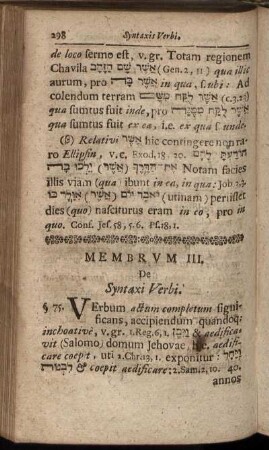 298 Syntaxis Verbi.
de loco sermo est, v. gr. Totam regionem
Chavila אשר שם הזהב (Gen. 2, 11) qua illic
aurum, pro אשר בה in qua, s. ubi: Ad
colendum terram אשר לקח משם (c. 3. 23)
qua sumtus fuit inde, pro אשר לקח ממנה
qua sumtus fuit ex ea, i. e. ex qua s. unde.
(6) Relativi אשר hic contingere non raro
Ellipsin, v. c. Exod. 18. 20. והודעת להם
את הדרך (אשר) ילכו בה Notam facies
illis viam (qua) ibunt in ea, in qua: Job 3.3.
יאבד יום (אשר) אולד בו (utinam) perisset
dies (quo) nasciturus eram in eo, pro in
quo. Conf. Jes. 58, 5. 6. Ps. 18, 1.
MEMBRVM III.
De
Syntaxi Verbi.
§ 75. Verbum actum completum signi-
ficans, accipiendum quandoq;
inchoative, v. gr. 1. Reg. 6, 1. ויבן & aedifica-
vit (Salomo) domum Jehovae, h. e. aedifi-
care coepit, uti 2. Chr. 3, 1. exponitur:
ויחל לבנות & coepit aedificare; 2. Sam. 2, 10. 40.
annos